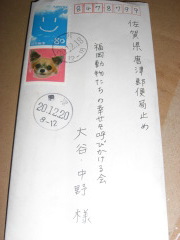 8478799
佐賀県唐津郵便局止め
福岡動物たちの幸せを呼びかける会
大谷・中野 様
80
20.12.20
8-12